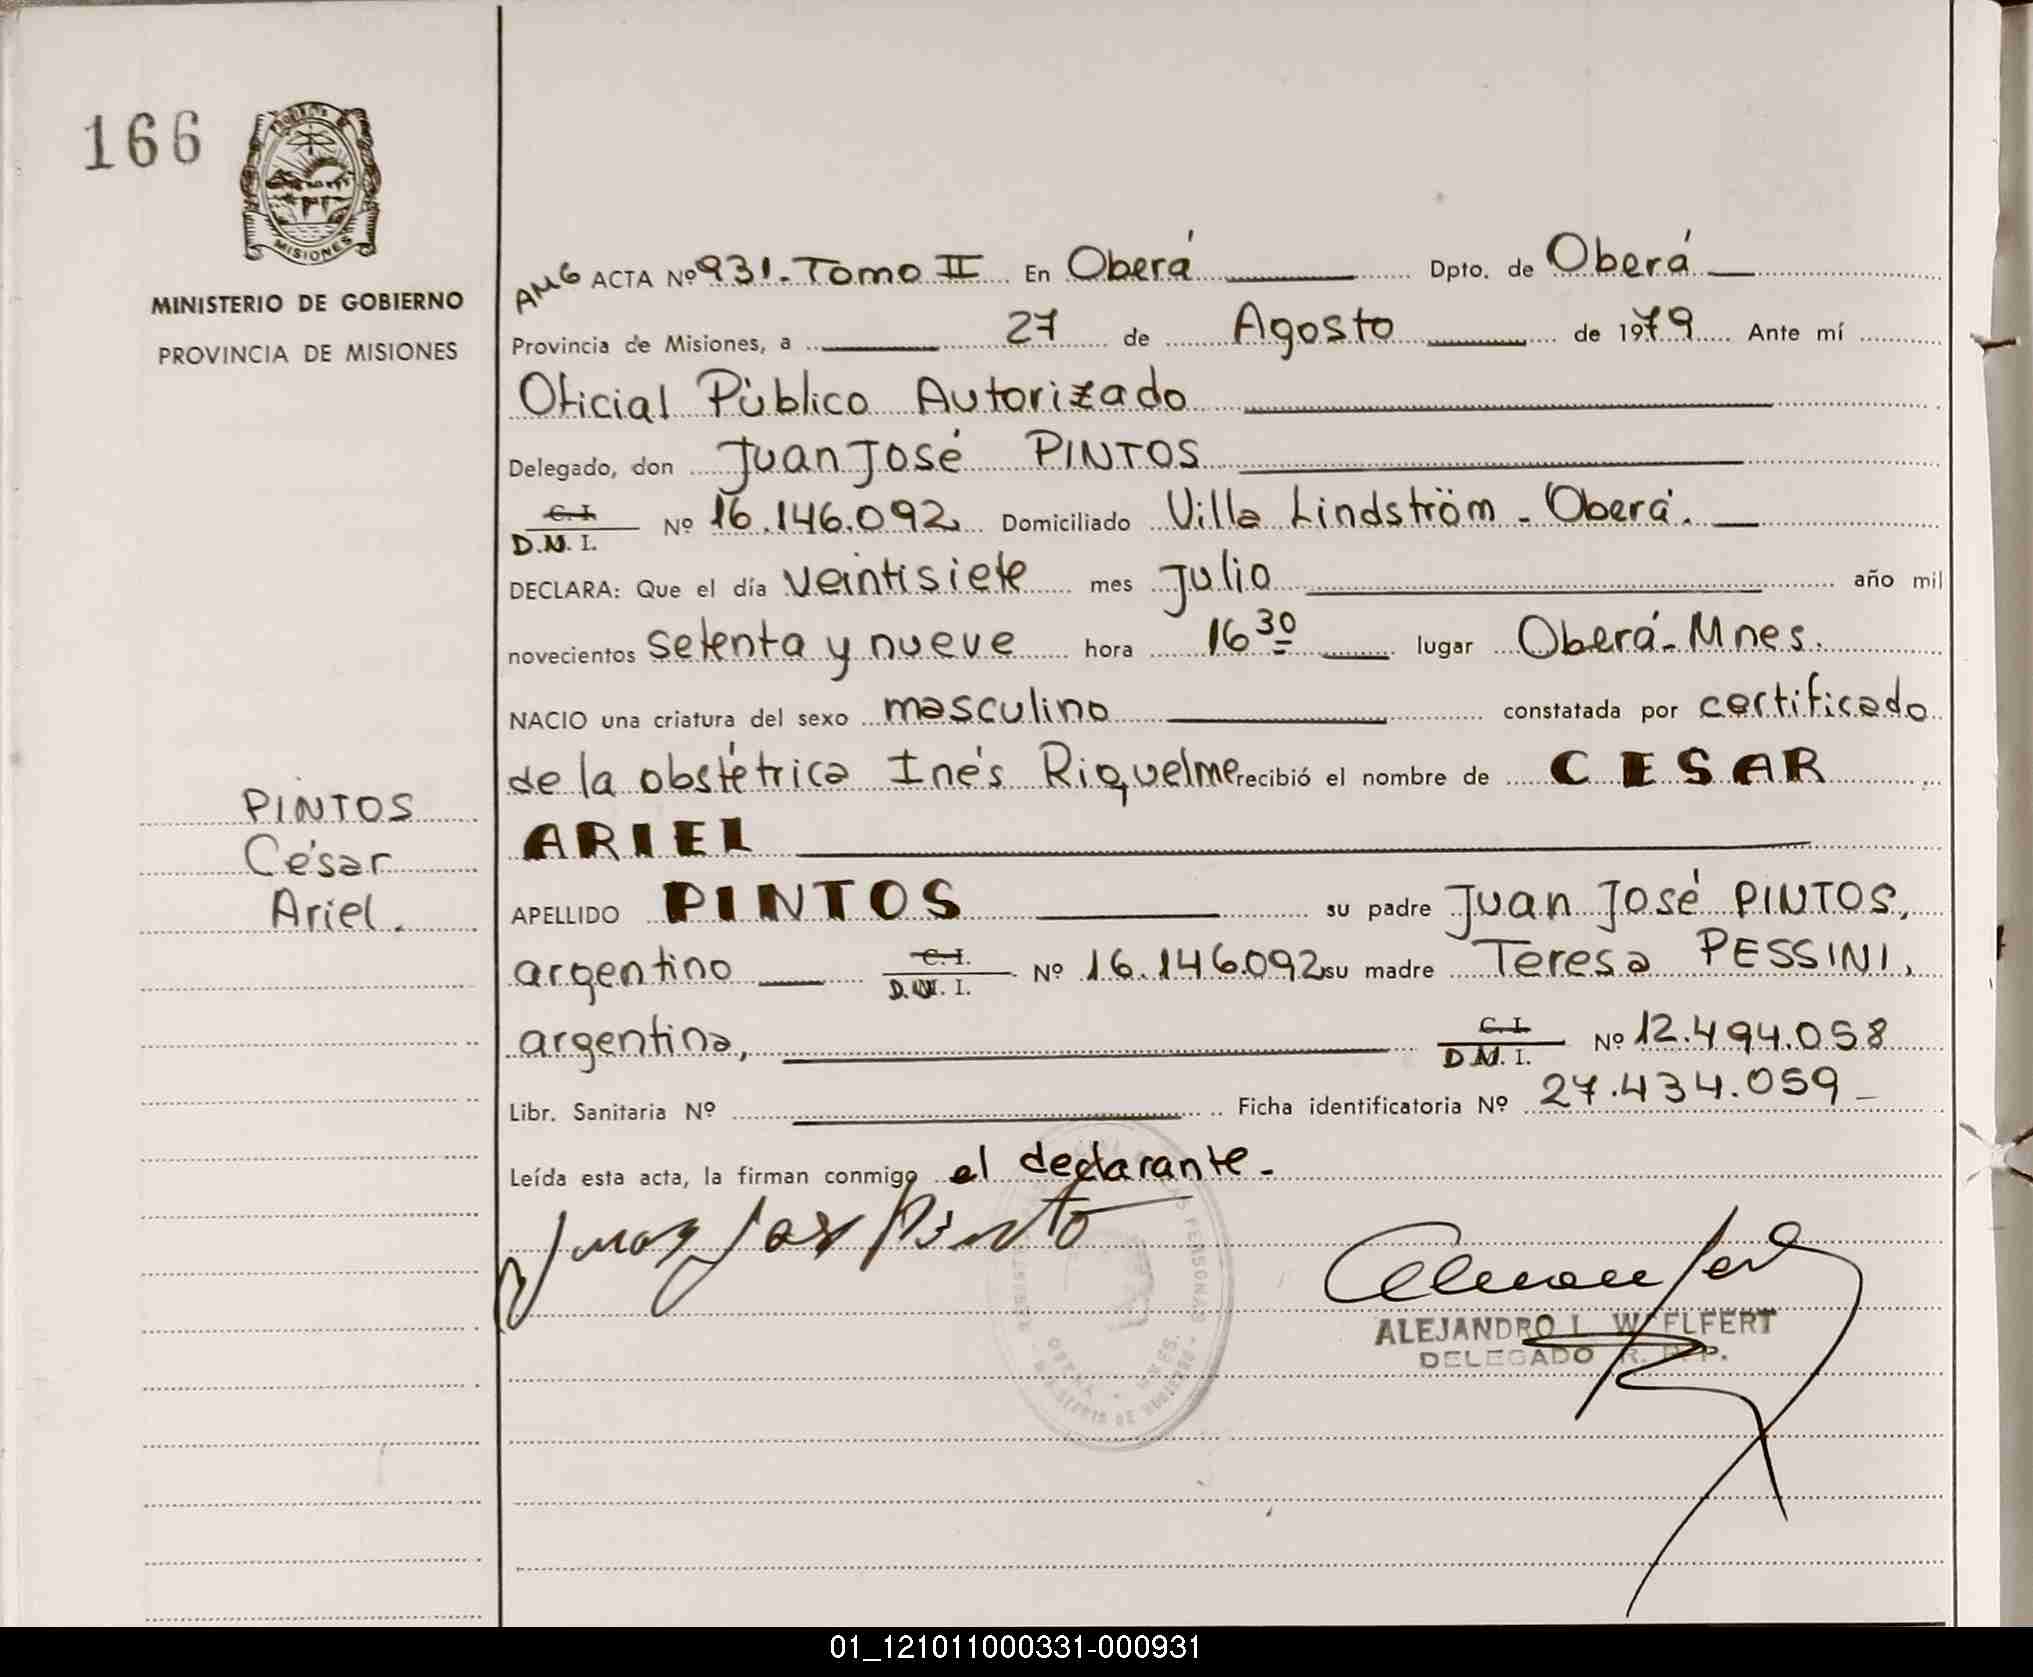 166
MISIONES
MINISTERIO DE GOBIERNO
PROVINCIA DE MISIONES
PINTOS
César
Ariel.
AMG ACTA Nº 931. Tomo II En Oberá Dpto. de Oberá
Provincia de Misiones, a 27 de Agosto de 1979 Ante mí
Oficial Público Autorizado
Delegado, don Juan José PINTOS
C. I.
D.N.I. Nº 16.146.092 Domiciliado Villa Lindström - Oberá.
DECLARA: Que el día veintisiete mes Julio año mil
novecientos setenta y nueve hora 16 30 lugar Oberá - Mnes.
NACIO una criatura del sexo masculino constatada por certificado
de la obstétrica Inés Riquelme recibió el nombre de CESAR
ARIEL
APELLIDO PINTOS su padre Juan José PINTOS,
argentino C. I. Nº 16.146.092 su madre Teresa PESSINI,
D.N.I.
argentina, C. I. Nº 12.494.058
D.N.I.
Libr. Sanitaria Nº Ficha identificatoria Nº 27.434.059
Leída esta acta, la firman conmigo el declarante.
Juan Jose Pinto
ALEJANDRO I. WELFERT
DELEGADO R. P. P.
01_121011000331-000931